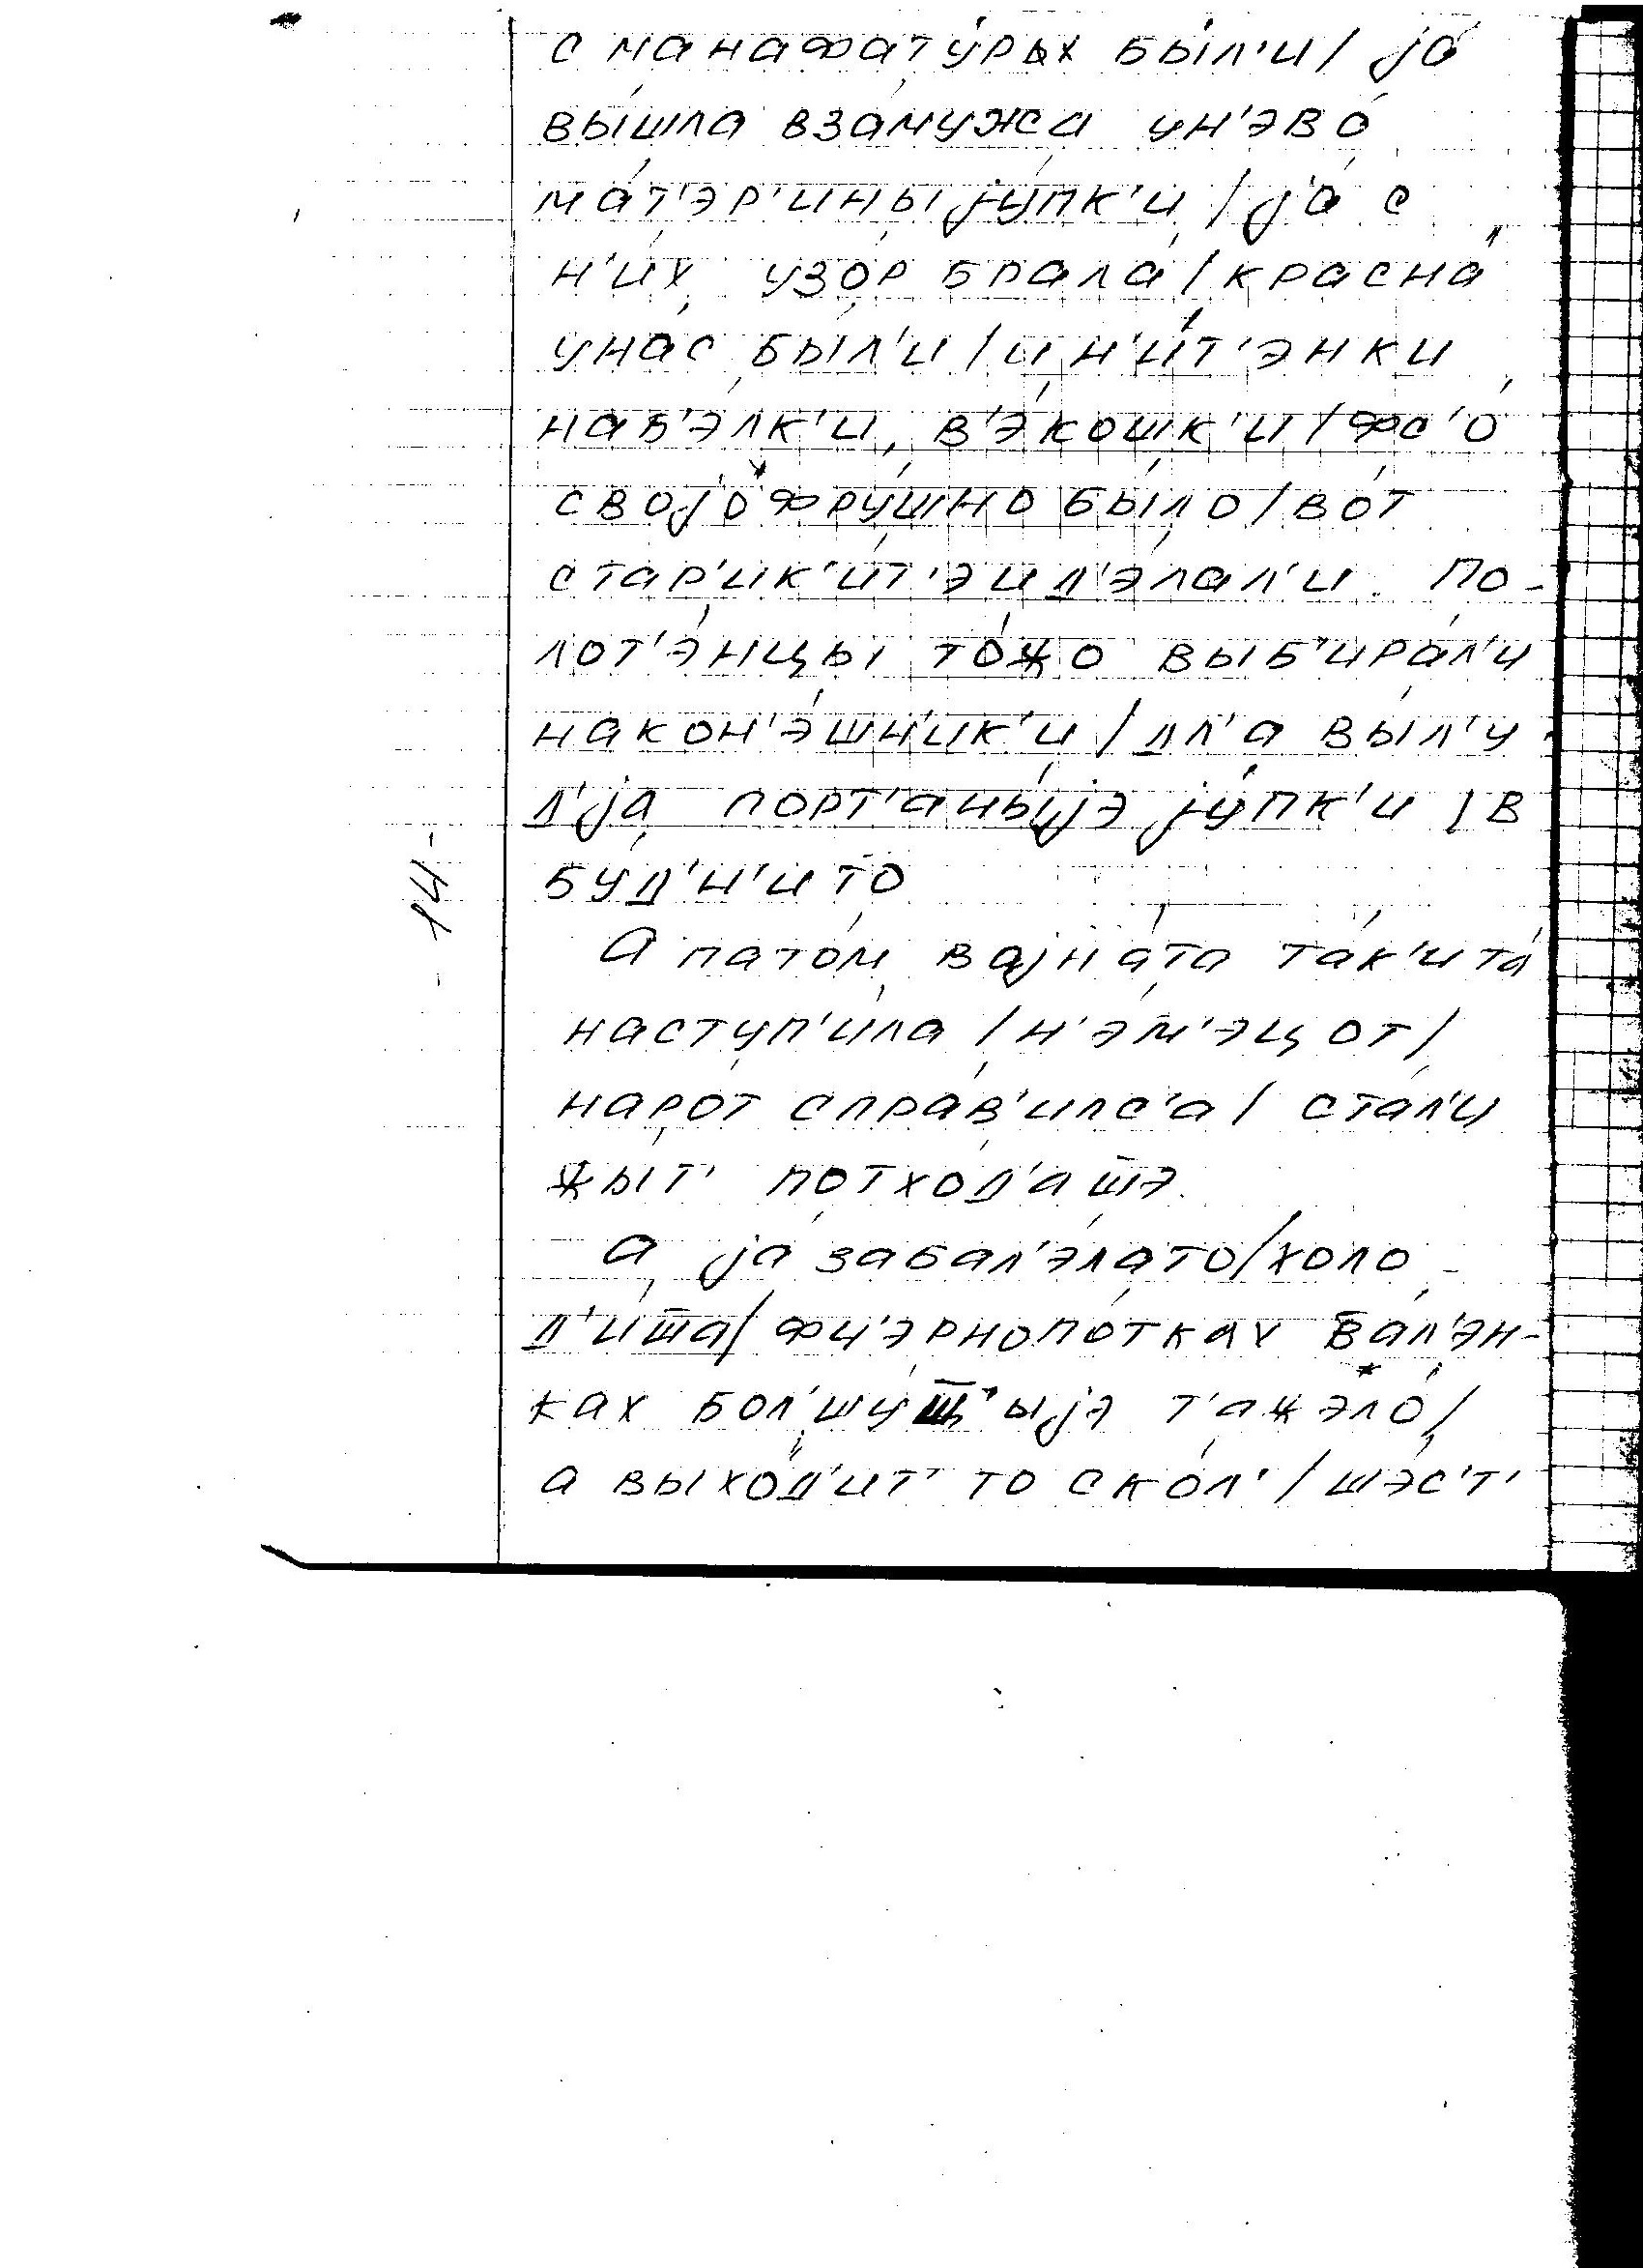 с манафату́рых бы́л'и / jа́
вы́шла взамужа ун'эво́
ма́т'эр'ины jу́пк'и / jа́ с
н'и́х узо́р брала́ / красна́
уна́с бы́л'и / и н'и́т'энки
наб'э́лк'и, в'э́кошк'и / фс'о́
своjо́ фру́шно бы́ло / во́т
стар'ик'и́т'э и д'э́лал'и. По-
лот'э́нцы то́жо выб'ира́л'и
након'э́шн'ик'и / дл'а вы́л'у
д'jа порт'аны́jэ jу́пк'и / в
бу́д'н'и то
А пато́мваjна́та та́к'ита
наступ'и́ла / н'э́м'эц от /
наро́т спра́в'илс'а / ста́л'и
жы́т' потход'а̄шэ.
А jа забал'э́лато / холо-
д'и́ш̄а / фч'э́рнопо́тках ва́л'эн-
ках бол'шу́щ'ыjэ т'ажэло́ /
а выхо́д'ит' то ско́л' / шэ́с'т'
-14-